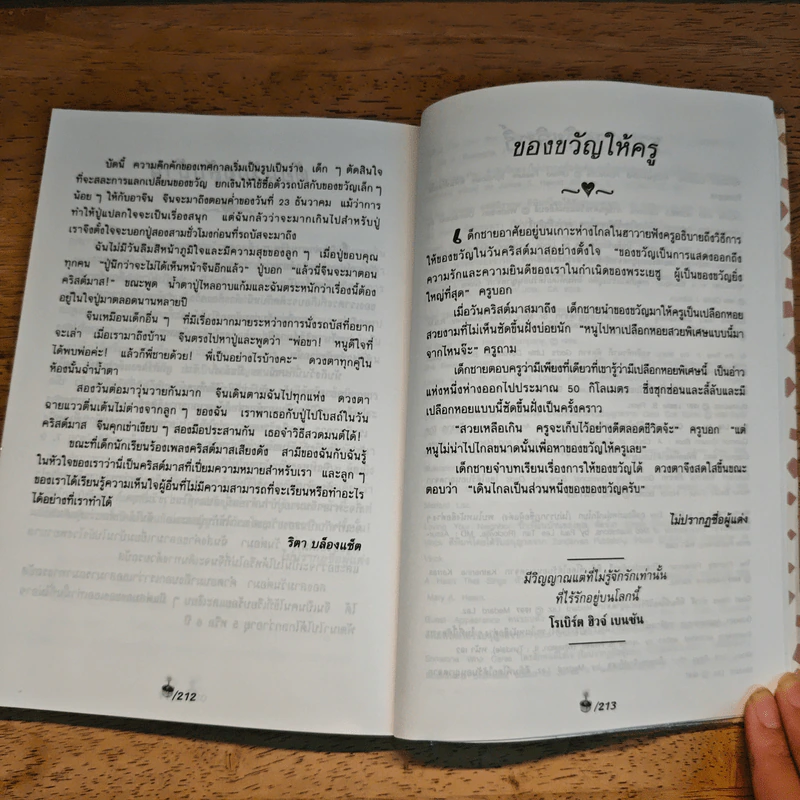 บัดนี้ ความคึกคักของเทศกาลเริ่มเป็นรูปเป็นร่าง เด็ก ๆ ตัดสินใจ
ที่จะสละการแลกเปลี่ยนของขวัญ ยกเงินให้ใช้ซื้อตั๋วรถบัสกับของขวัญเล็ก ๆ
น้อย ๆ ให้กับอาจีน จีนจะมาถึงตอนค่ำของวันที่ 23 ธันวาคม แม้ว่าการ
ทำให้ปู่แปลกใจจะเป็นเรื่องสนุก แต่ฉันกลัวว่าจะมากเกินไปสำหรับปู่
เราจึงตั้งใจจะบอกปู่สองสามชั่วโมงก่อนที่รถบัสจะมาถึง
ฉันไม่มีวันลืมสีหน้าภูมิใจและมีความสุขของลูก ๆ เมื่อปู่ขอบคุณ
ทุกคน "ปู่นึกว่าจะไม่ได้เห็นหน้าจีนอีกแล้ว" ปู่บอก "แล้วนี่จีนจะมาตอน
คริสต์มาส!" ขณะพูด น้ำตาปู่ไหลอาบแก้มและฉันตระหนักว่าเรื่องนี้ต้อง
อยู่ในใจปู่มาตลอดนานหลายปี
จีนเหมือนเด็กอื่น ๆ ที่มีเรื่องมากมายระหว่างการนั่งรถบัสที่อยาก
จะเล่า เมื่อเรามาถึงบ้าน จีนตรงไปหาปู่และพูดว่า "พ่อขา! หนูดีใจที่
ได้พบพ่อค่ะ! แล้วก็พี่ชายด้วย! พี่เป็นอย่างไรบ้างคะ" ดวงตาทุกคู่ใน
ห้องนั้นฉ่ำน้ำตา
สองวันต่อมาวุ่นวายกันมาก จีนเดินตามฉันไปทุกแห่ง ดวงตา
ฉายแววตื่นเต้นไม่ต่างจากลูก ๆ ของฉัน เราพาเธอกับปู่ไปโบสถ์ในวัน
คริสต์มาส จีนคุกเข่าเงียบ ๆ สองมือประสานกัน เธอจำวิธีสวดมนต์ได้!
ขณะที่เด็กนักเรียนร้องเพลงคริสต์มาสเสียงดัง สามีของฉันกับฉันรู้
ในหัวใจของเราว่านี่เป็นคริสต์มาสที่เปี่ยมความหมายสำหรับเรา และลูก ๆ
ของเราได้เรียนรู้ความเห็นใจผู้อื่นที่ไม่มีความสามารถที่จะเรียนหรือทำอะไร
ได้อย่างที่เราทำได้
ริตา บล็องแช็ต
/212
ของขวัญให้ครู
เด็กชายอาศัยอยู่บนเกาะห่างไกลในฮาวายฟังครูอธิบายถึงวิธีการ
ให้ของขวัญในวันคริสต์มาสอย่างตั้งใจ "ของขวัญเป็นการแสดงออกถึง
ความรักและความยินดีของเราในกำเนิดของพระเยซู ผู้เป็นของขวัญยิ่ง
ใหญ่ที่สุด" ครูบอก
เมื่อวันคริสต์มาสมาถึง เด็กชายนำของขวัญมาให้ครูเป็นเปลือกหอย
สวยงามที่ไม่เห็นซัดขึ้นฝั่งบ่อยนัก "หนูไปหาเปลือกหอยสวยพิเศษแบบนี้มา
จากไหนจ๊ะ" ครูถาม
เด็กชายตอบครูว่ามีเพียงที่เดียวที่เขารู้ว่ามีเปลือกหอยพิเศษนี้ เป็นอ่าว
แห่งหนึ่งห่างออกไปประมาณ 50 กิโลเมตร ซึ่งซุกซ่อนและลี้ลับและมี
เปลือกหอยแบบนี้ซัดขึ้นฝั่งเป็นครั้งคราว
"สวยเหลือเกิน ครูจะเก็บไว้อย่างดีตลอดชีวิตจ้ะ" ครูบอก "แต่
หนูไม่น่าไปไกลขนาดนั้นเพื่อหาของขวัญให้ครูเลย"
เด็กชายจำบทเรียนเรื่องการให้ของขวัญได้ ดวงตาจึงสดใสขึ้นขณะ
ตอบว่า "เดินไกลเป็นส่วนหนึ่งของของขวัญครับ"
ไม่ปรากฏชื่อผู้แต่ง
มีวิญญาณแต่ที่ไม่รู้จักรักเท่านั้น
ที่ไร้รักอยู่บนโลกนี้
โรเบิร์ต ฮิวจ์ เบนซัน
/213